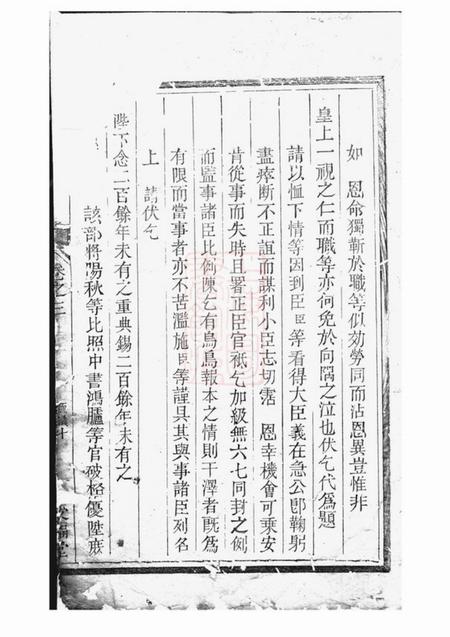 如　恩命獨靳於職等似効勞同而沾恩異豈惟非
皇上一視之仁而職等亦何免於向隅之泣也伏乞代為題
請以恤下情等因到臣臣等看得大臣義在急公卽鞠躬
盡瘁斷不正誼而謀利小臣志切霑　恩幸機會可乘安
肯從事而失時且署正臣官祇乞加級無六七同封之例
而監事諸臣比例陳乞有烏鳥報本之情則干澤者既為
有限而當事者亦不苦濫施臣等謹具其與事諸臣列名
上　請伏乞
陛下念二百餘年未有之重典錫二百餘年未有之
該部將陽秋等比照中書鴻臚等官破格優陞庶
卷之三